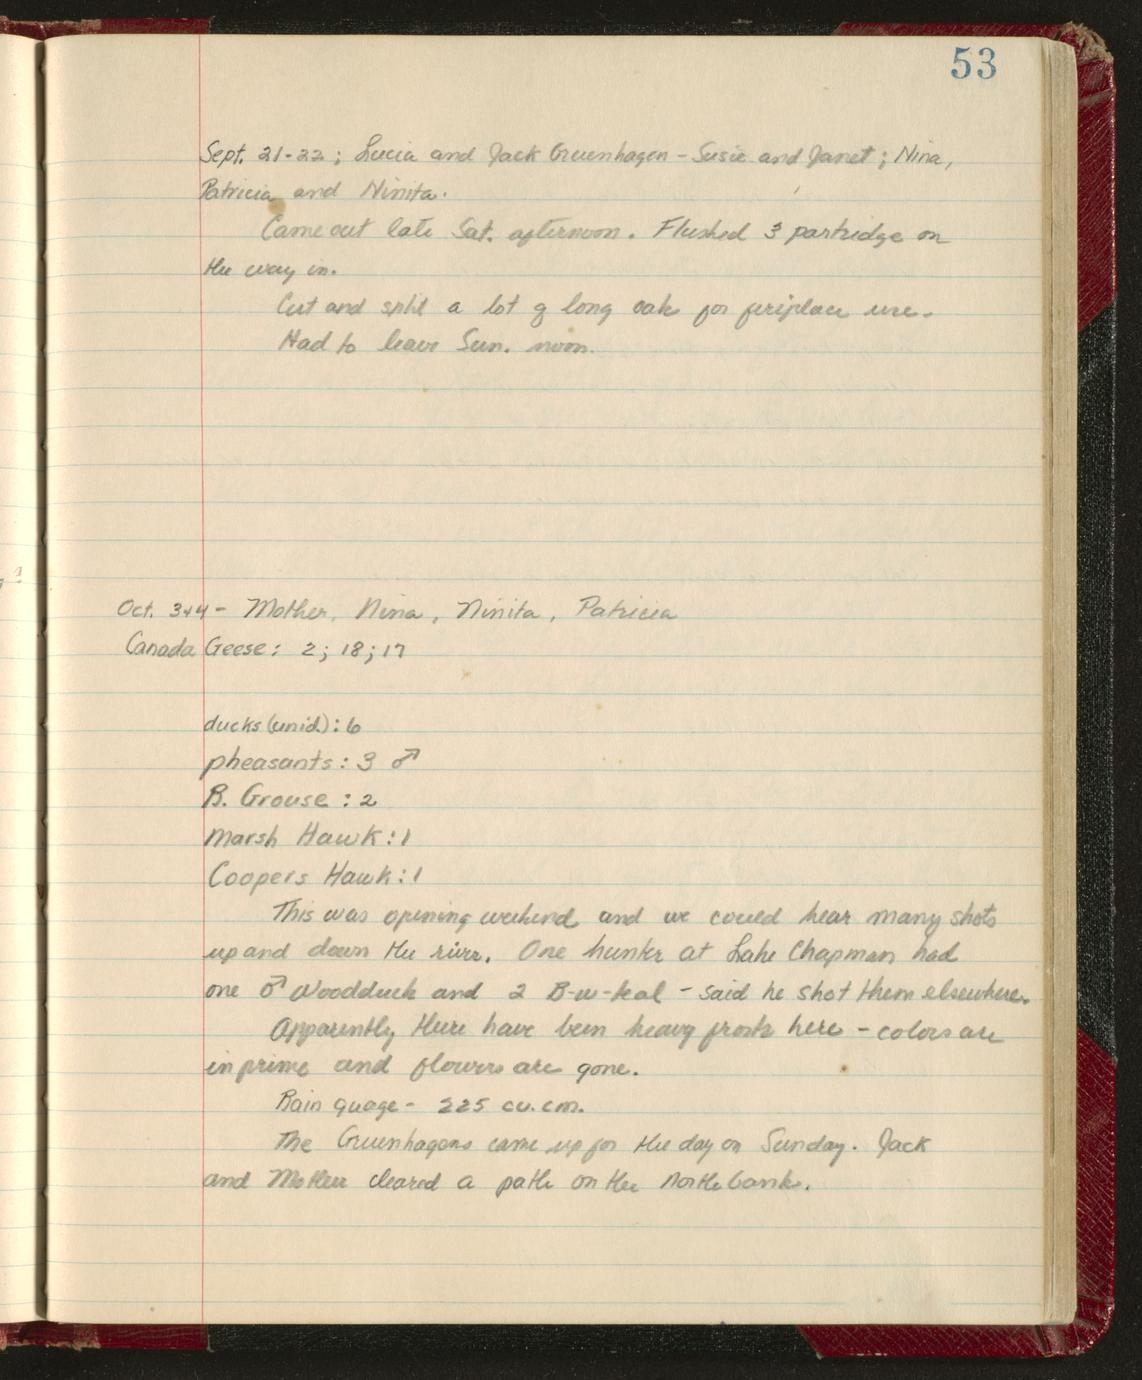 53
Sept. 21-22; Lucia and Jack Gruenhagen - Susie and Janet; Nina,
Patricia and Ninita.
Came out late Sat. afternoon. Flushed 3 partridge on
the way in.
Cut and split a lot of long oak for fireplace use.
Had to leave Sun. noon.
Oct. 3+4 - Mother, Nina, Ninita, Patricia
Canada Geese: 2; 18; 17
ducks (unid.): 6
pheasants: 3 ♂
R. Grouse: 2
Marsh Hawk: 1
Coopers Hawk: 1
This was opening weekend and we could hear many shots
up and down the river. One hunter at Lake Chapman had
one ♂ Woodduck and 2 B-w-teal - said he shot them elsewhere.
Apparently there have been heavy frosts here - colors are
in prime and flowers are gone.
Rain guage - 225 cu.cm.
The Gruenhagens came up for the day on Sunday. Jack
and Mother cleared a path on the north bank.